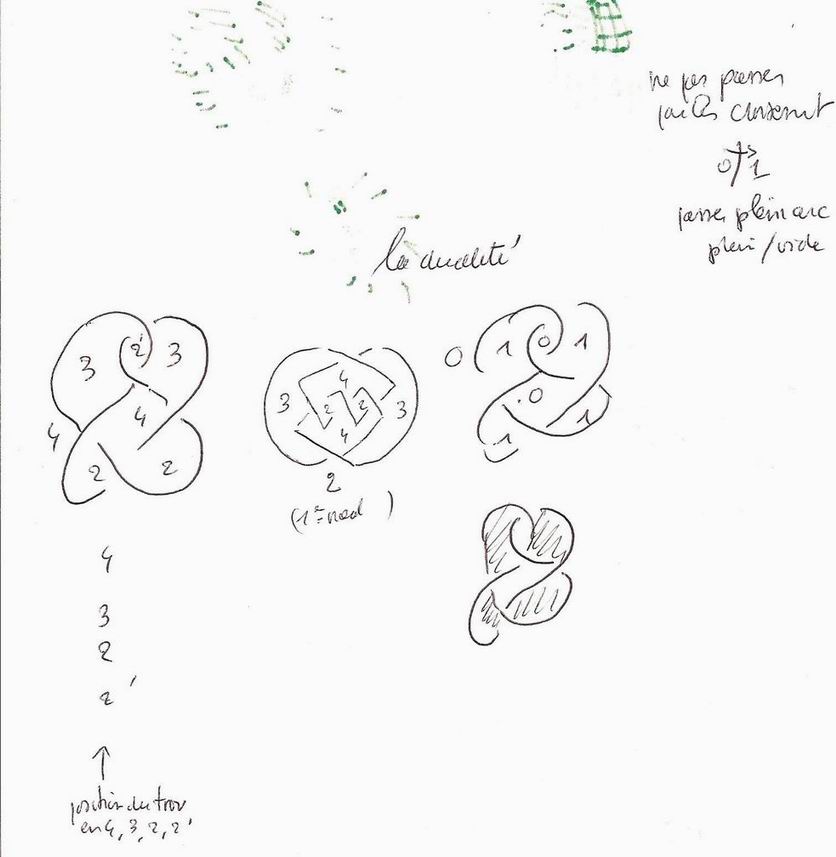 ne pas passer
par les croisements
0 → 1
passer plein arc
plein/vide
la dualité
3 2' 3
4 4
2 2
3 4 3
2 2
4
2
(1er nœud )
0 1 0 1
0
1 1
4
3
2
2'
↑
position du trou
en 4, 3, 2, 2'